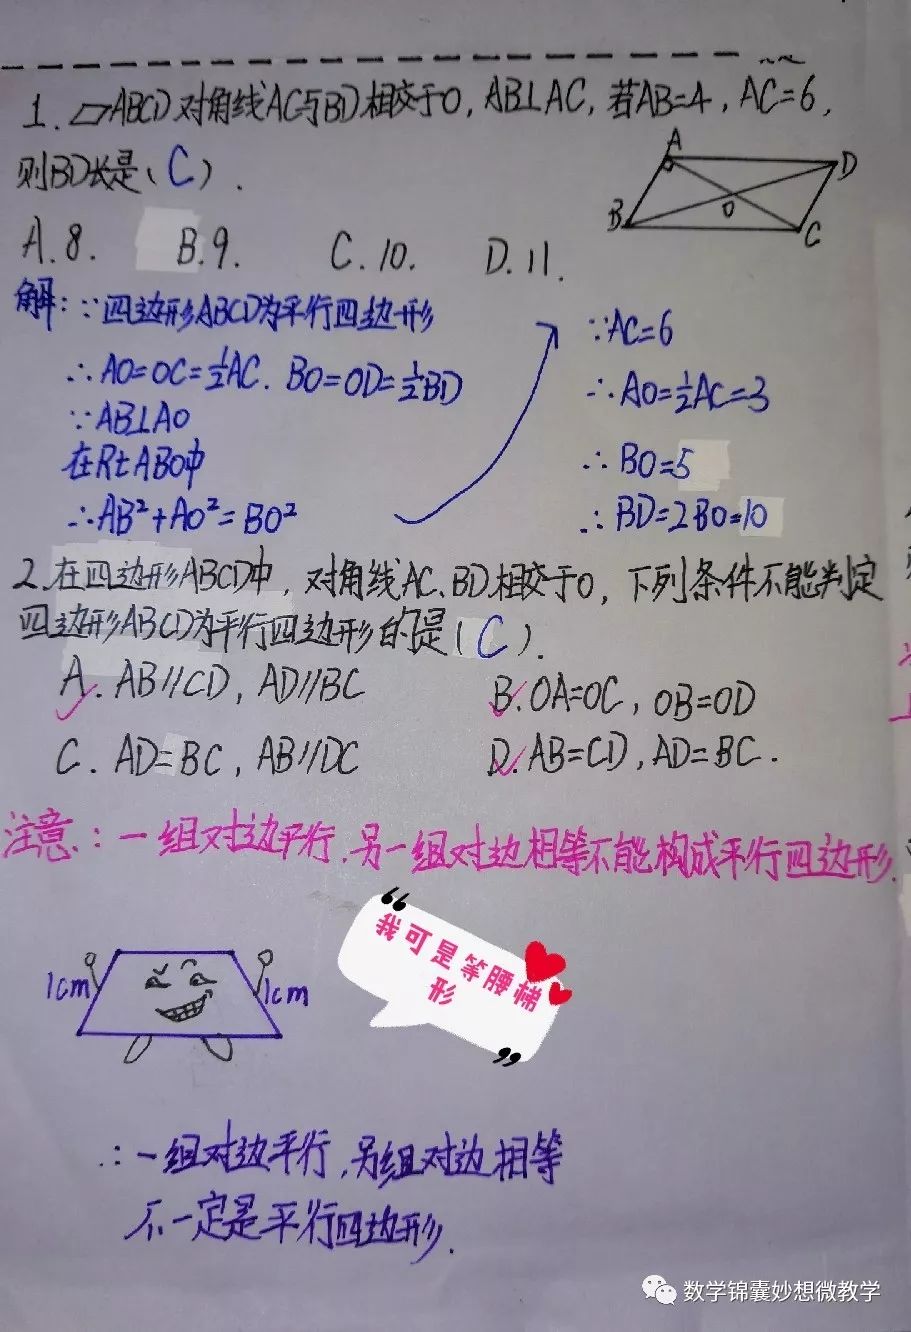 1. ▱ABCD对角线AC与BD相交于O, AB⊥AC, 若AB=4, AC=6,
则BD长是(C).
A.8. B.9. C.10. D.11.
A
D
B
O
C
解: ∵四边形ABCD为平行四边形
∴AO=OC=½AC. BO=OD=½BD
∵AB⊥AO
在Rt ABO中
∴AB²+AO²=BO²
∵AC=6
∴AO=½AC=3
∴BO=5
∴BD=2BO=10
2.在四边形ABCD中, 对角线AC、BD相交于O, 下列条件不能判定
四边形ABCD为平行四边形的是(C).
A. AB//CD, AD//BC B. OA=OC, OB=OD
C. AD=BC, AB//DC D. AB=CD, AD=BC.
注意: 一组对边平行,另一组对边相等不能构成平行四边形.
1cm 1cm
“我可是等腰梯
形”
∴一组对边平行,另组对边相等
不一定是平行四边形.
数学锦囊妙想微教学